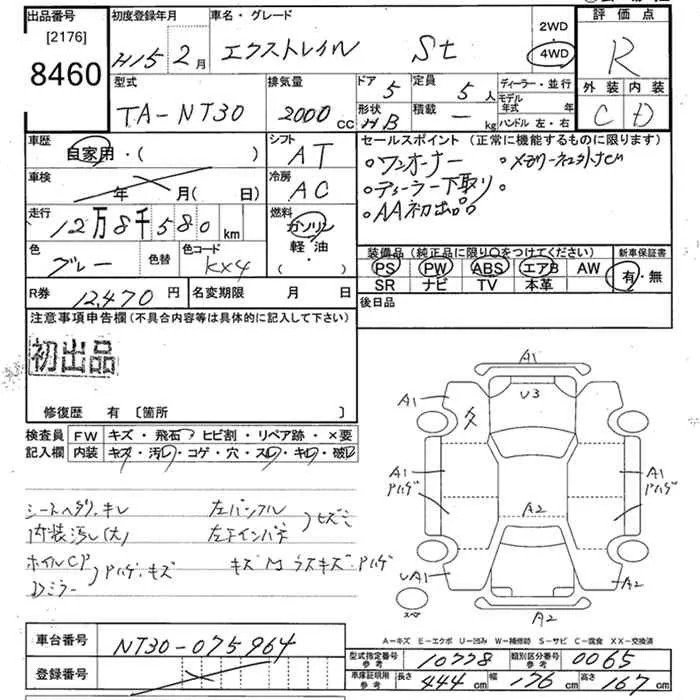 出品番号
[2176]
8460
初度登録年月
H15 2 月
車名・グレード
エクストレイル St
2WD
4WD
評価点
R
外装 内装
C D
型式
TA-NT30
排気量
2000 cc
ドア 5
形状 HB
定員 5 人
積載 ー kg
ディーラー・並行
モデル年式 年
ハンドル 左・右
車歴
自家用・( )
車検
年 月( 日)
シフト
AT
冷房
AC
走行
12万8千580 km
燃料
ガソリン
軽・油
・( )
色
グレー
色替
色コード
KX4
セールスポイント (正常に機能するものに限ります)
○ワンオーナー
○ディーラー下取り
○AA初出品
装備品(純正品に限り○をつけてください)
PS PW ABS エアB AW
SR ナビ TV 本革
新車保証書
有・無
R券 12,470 円
名変期限 月 日
後日品
注意事項申告欄(不具合内容等は具体的に記入して下さい)
初出品
修復歴 有 〔箇所 〕
検査員記入欄
FW キズ・飛石・ヒビ割・リペア跡・×要
内装 キズ・汚レ・コゲ・穴・スレ・キレ・破レ
シートヘタリ・キレ
内装汚レ(大)
ホイルCP
Dミラー
Aハゲ・キズ
A1
A1
U3
A1
Aハゲ
A1
Aハゲ
A2
UA1
A2
A2
スペア
A-キズ E-エクボ U-凹み W-補修跡 S-サビ C-腐食 XX-交換済
車台番号 NT30-075964
登録番号
型式指定番号 参考 10778
類別区分番号 参考 0065
車庫証明用 参考 長さ 444 cm 幅 176 cm 高さ 167 cm